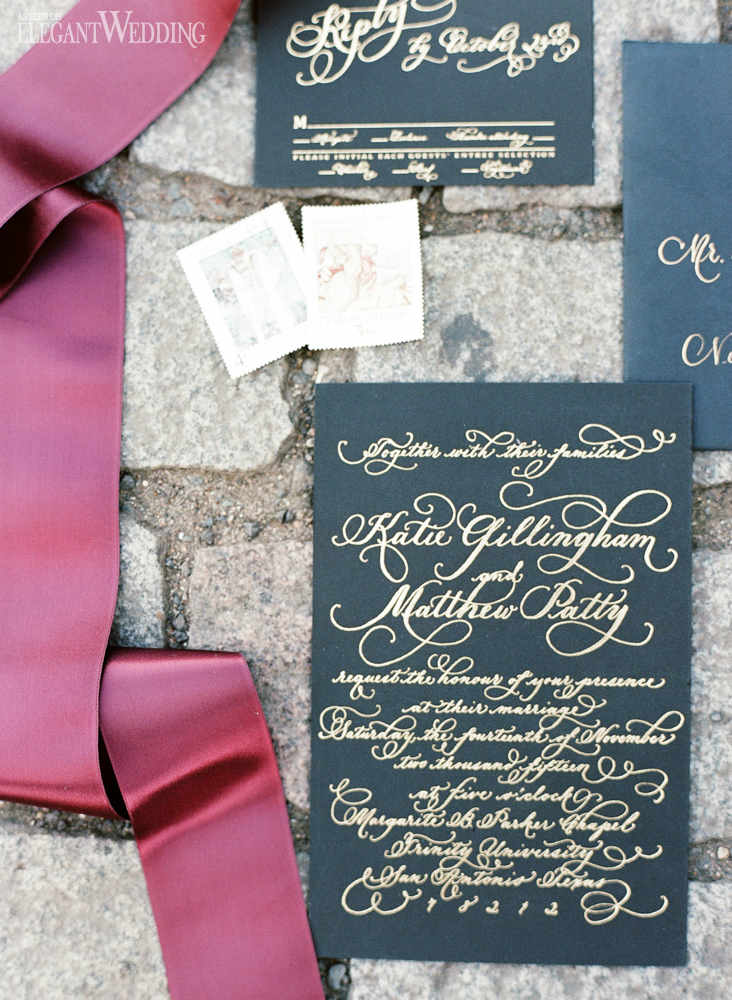 ELEGANT WEDDING
Reply by October 23rd
M
PLEASE INITIAL EACH GUESTS' ENTREE SELECTION
Mr.
Together with their families
Katie Gillingham
and
Matthew Patty
request the honour of your presence
at their marriage
Saturday, the fourteenth of November
two thousand fifteen
at five o'clock
Margarite B. Parker Chapel
Trinity University
San Antonio Texas
78212